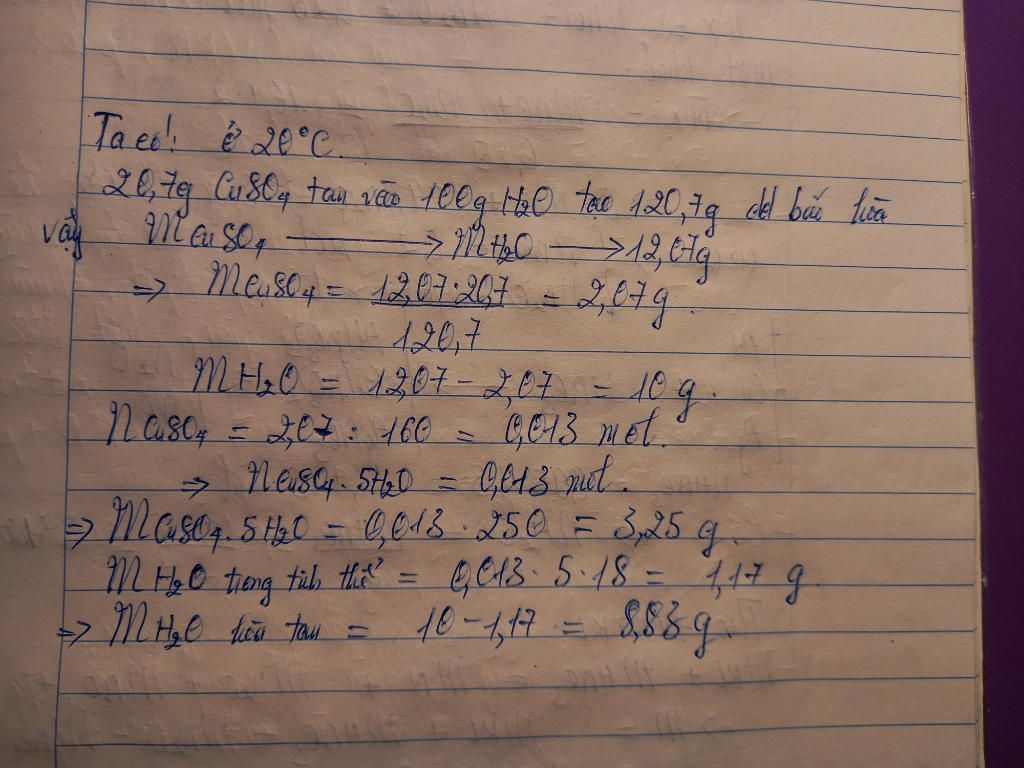 Ta có: ở 20°C.
20,7g CuSO4 tan vào 100g H2O tạo 120,7g dd bão hòa
vậy mCuSO4 → mH2O → 12,07g
=> mCuSO4 = 12,07.20,7 / 120,7 = 2,07g.
mH2O = 12,07 - 2,07 = 10 g.
nCuSO4 = 2,07 : 160 = 0,013 mol.
=> nCuSO4.5H2O = 0,013 mol.
=> mCuSO4.5H2O = 0,013 . 250 = 3,25 g.
mH2O trong tinh thể = 0,013.5.18 = 1,17 g.
=> mH2O hòa tan = 10 - 1,17 = 8,83 g.